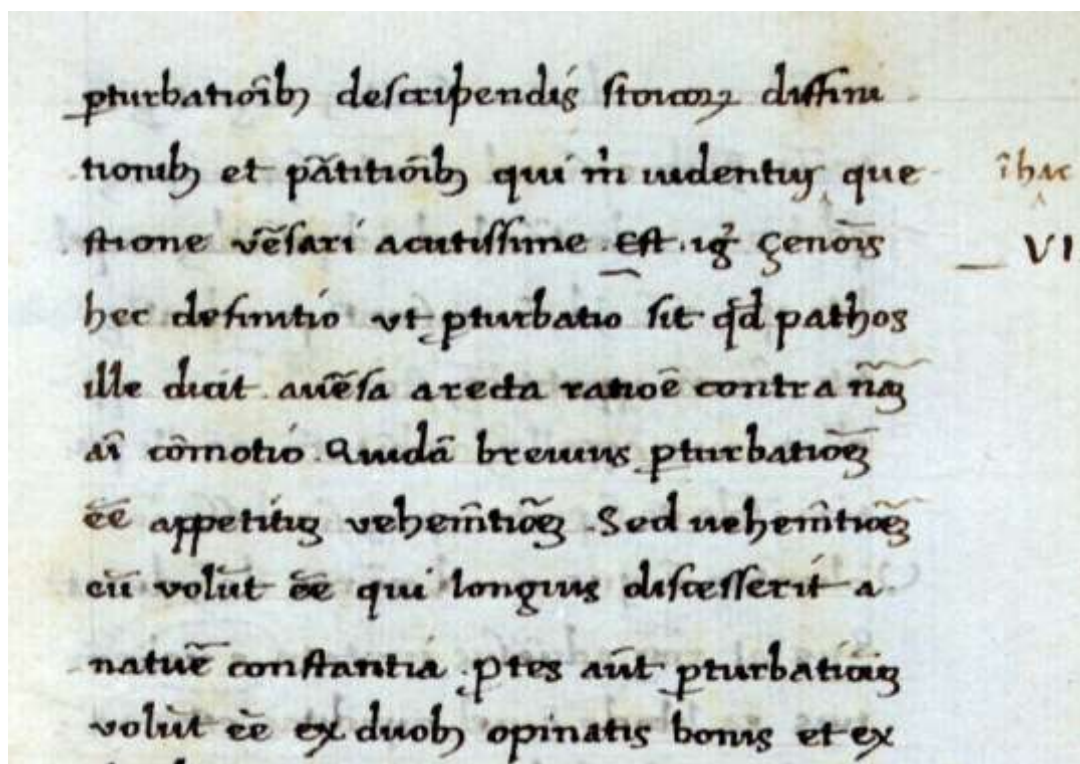 ꝑturbatiōibꝫ descripendis stoicoꝝ diffini
tionibꝫ et ꝑātitiōibꝫ qui m̊ uidentur que īhac
stione v̄esari acutissime . Est . igͥ ZenoīS VI
hec definitio ut ꝑturbatio sit qd̄ pathos
ille dicit aūesa a recta ratioē contra nāꝫ
aī cōmotio . Quidā breuius ꝑturbatiōeꝫ
ēe appetituꝫ vehemētiōeꝫ . Sed uehemētiōeꝫ
eū volūt ēe qui longius discesserit a
natuē constantia . Ꝑtes aūt ꝑturbationuꝫ
volūt ēe ex duobꝫ opinatis bonis et ex